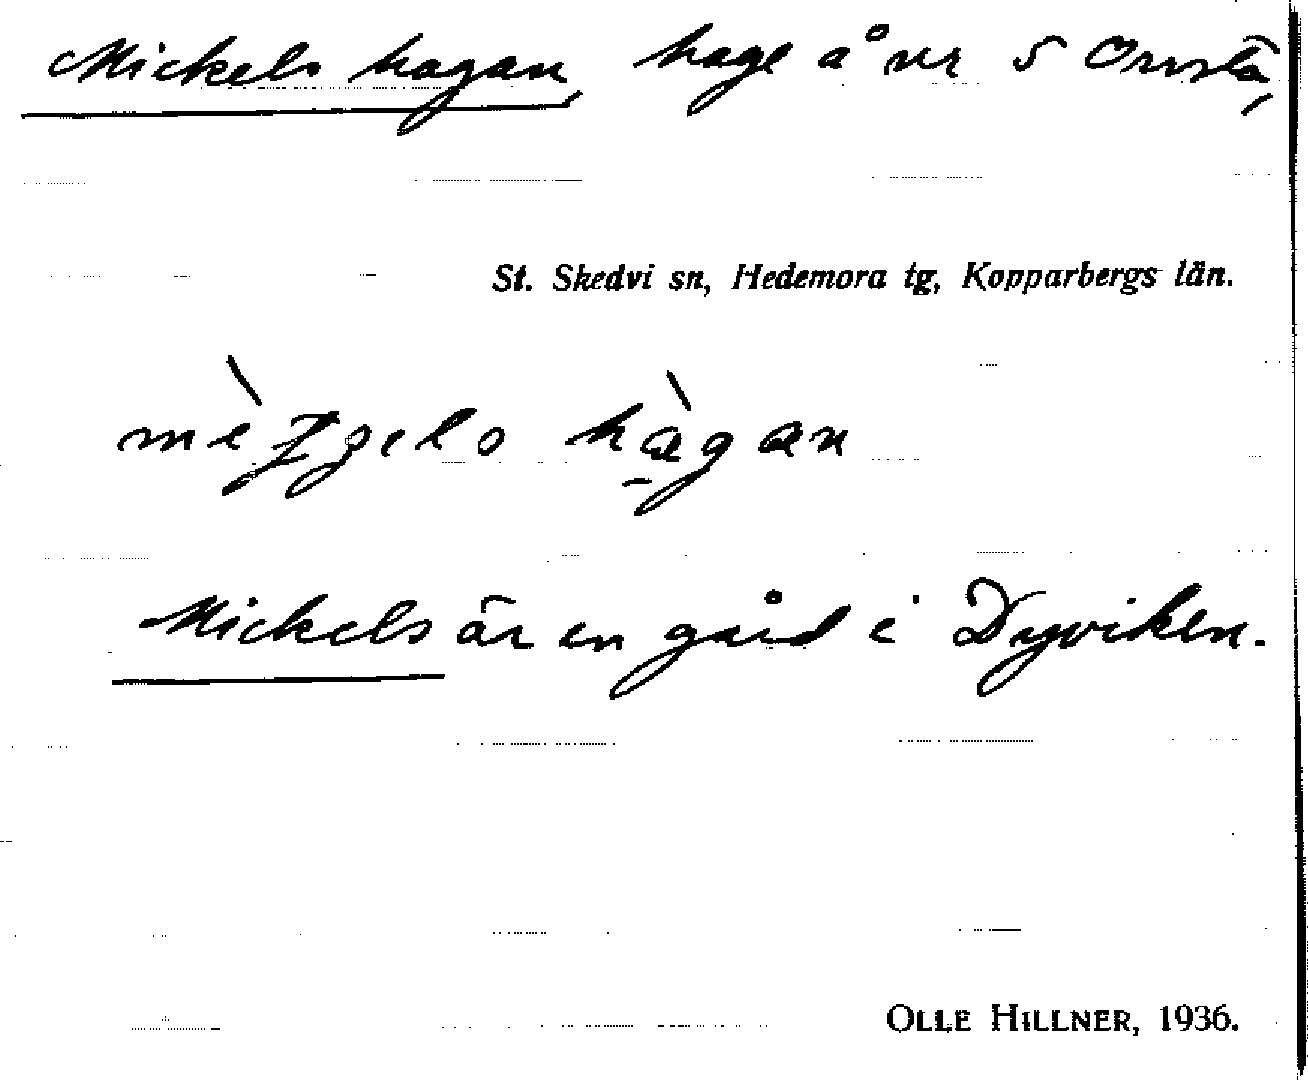 Mickels hagan, hage å nr 5 Orrsta,
St. Skedvi sn, Hedemora tg, Kopparbergs län.
hàgan
Mickels är en gård i Dyviken.
OLLE HILLNER, 1936.